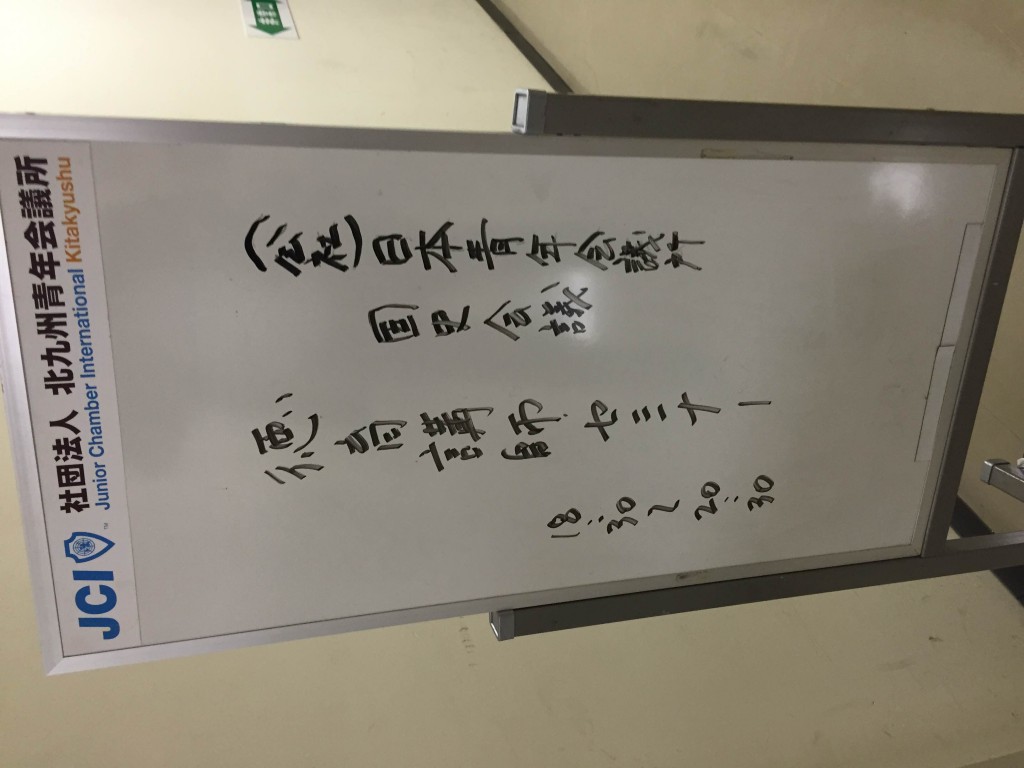 JCI™ 社団法人 北九州青年会議所
Junior Chamber International Kitakyushu
(公社)日本青年会議所
国史会議
徳育講師セミナー
18:30〜20:30